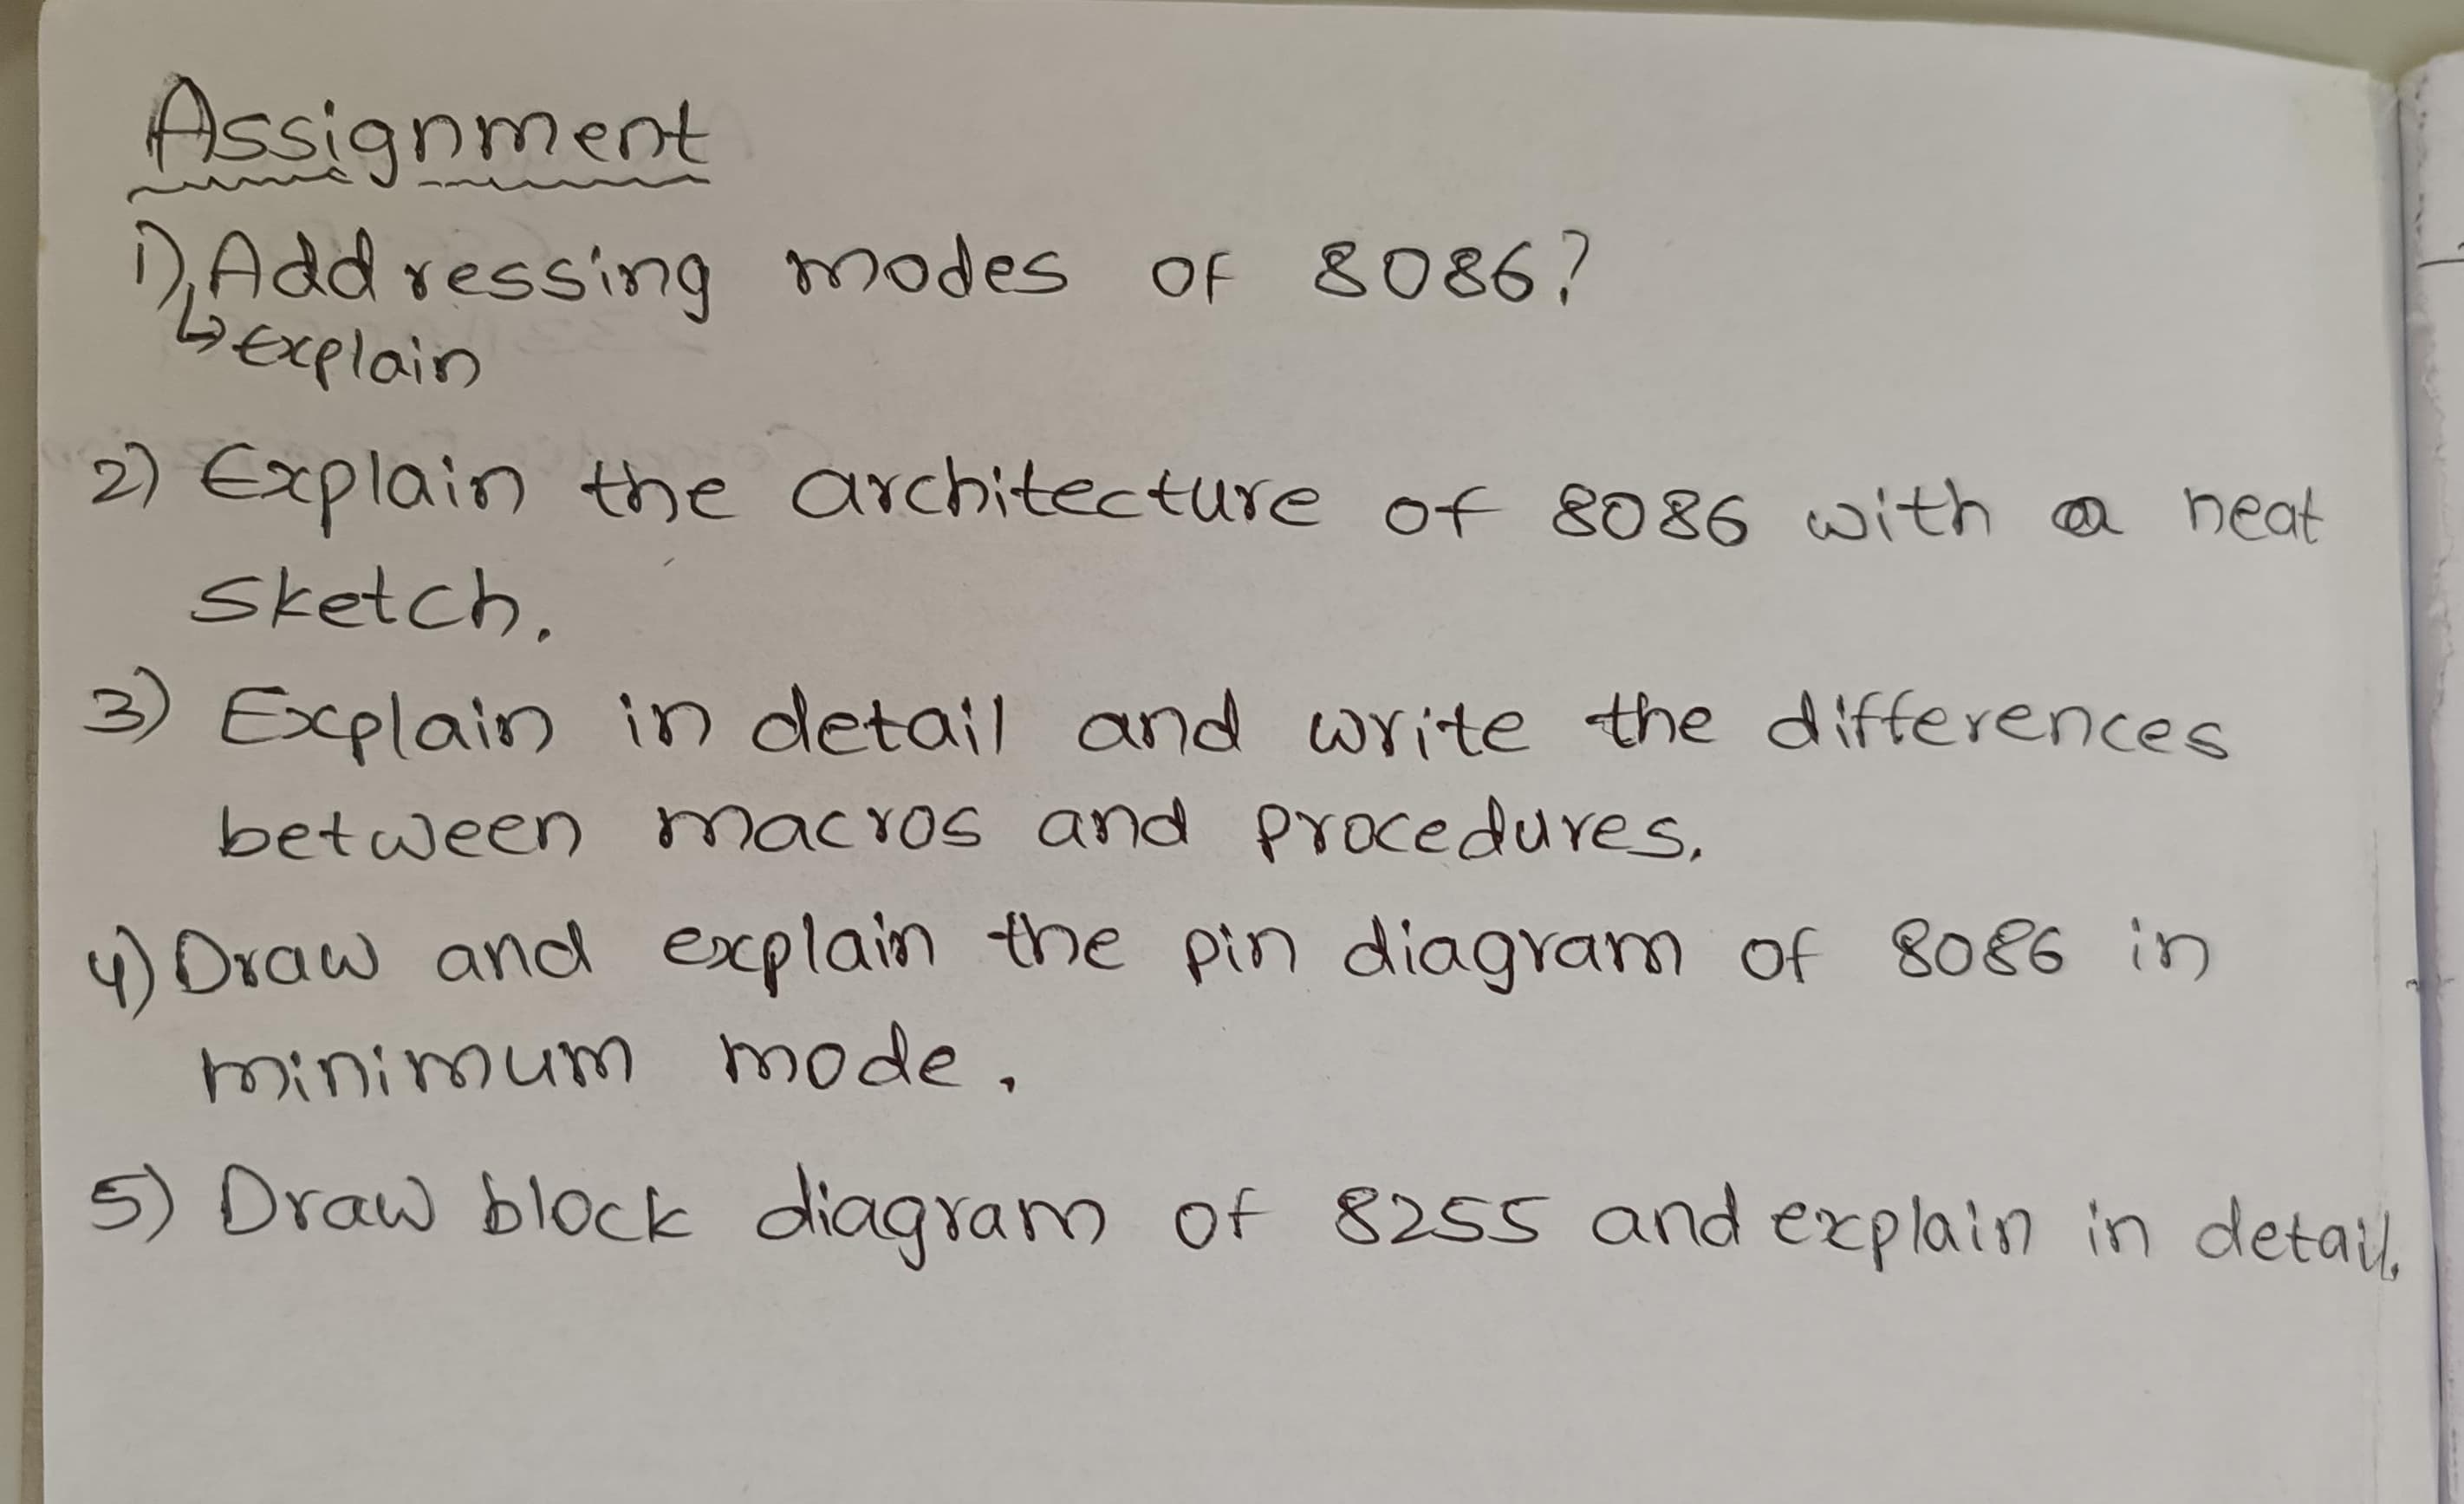 Assignment
1) Addressing modes of 8086?
↳ Explain
2) Explain the architecture of 8086 with a neat
sketch.
3) Explain in detail and write the differences
between macros and procedures.
4) Draw and explain the pin diagram of 8086 in
minimum mode.
5) Draw block diagram of 8255 and explain in detail.